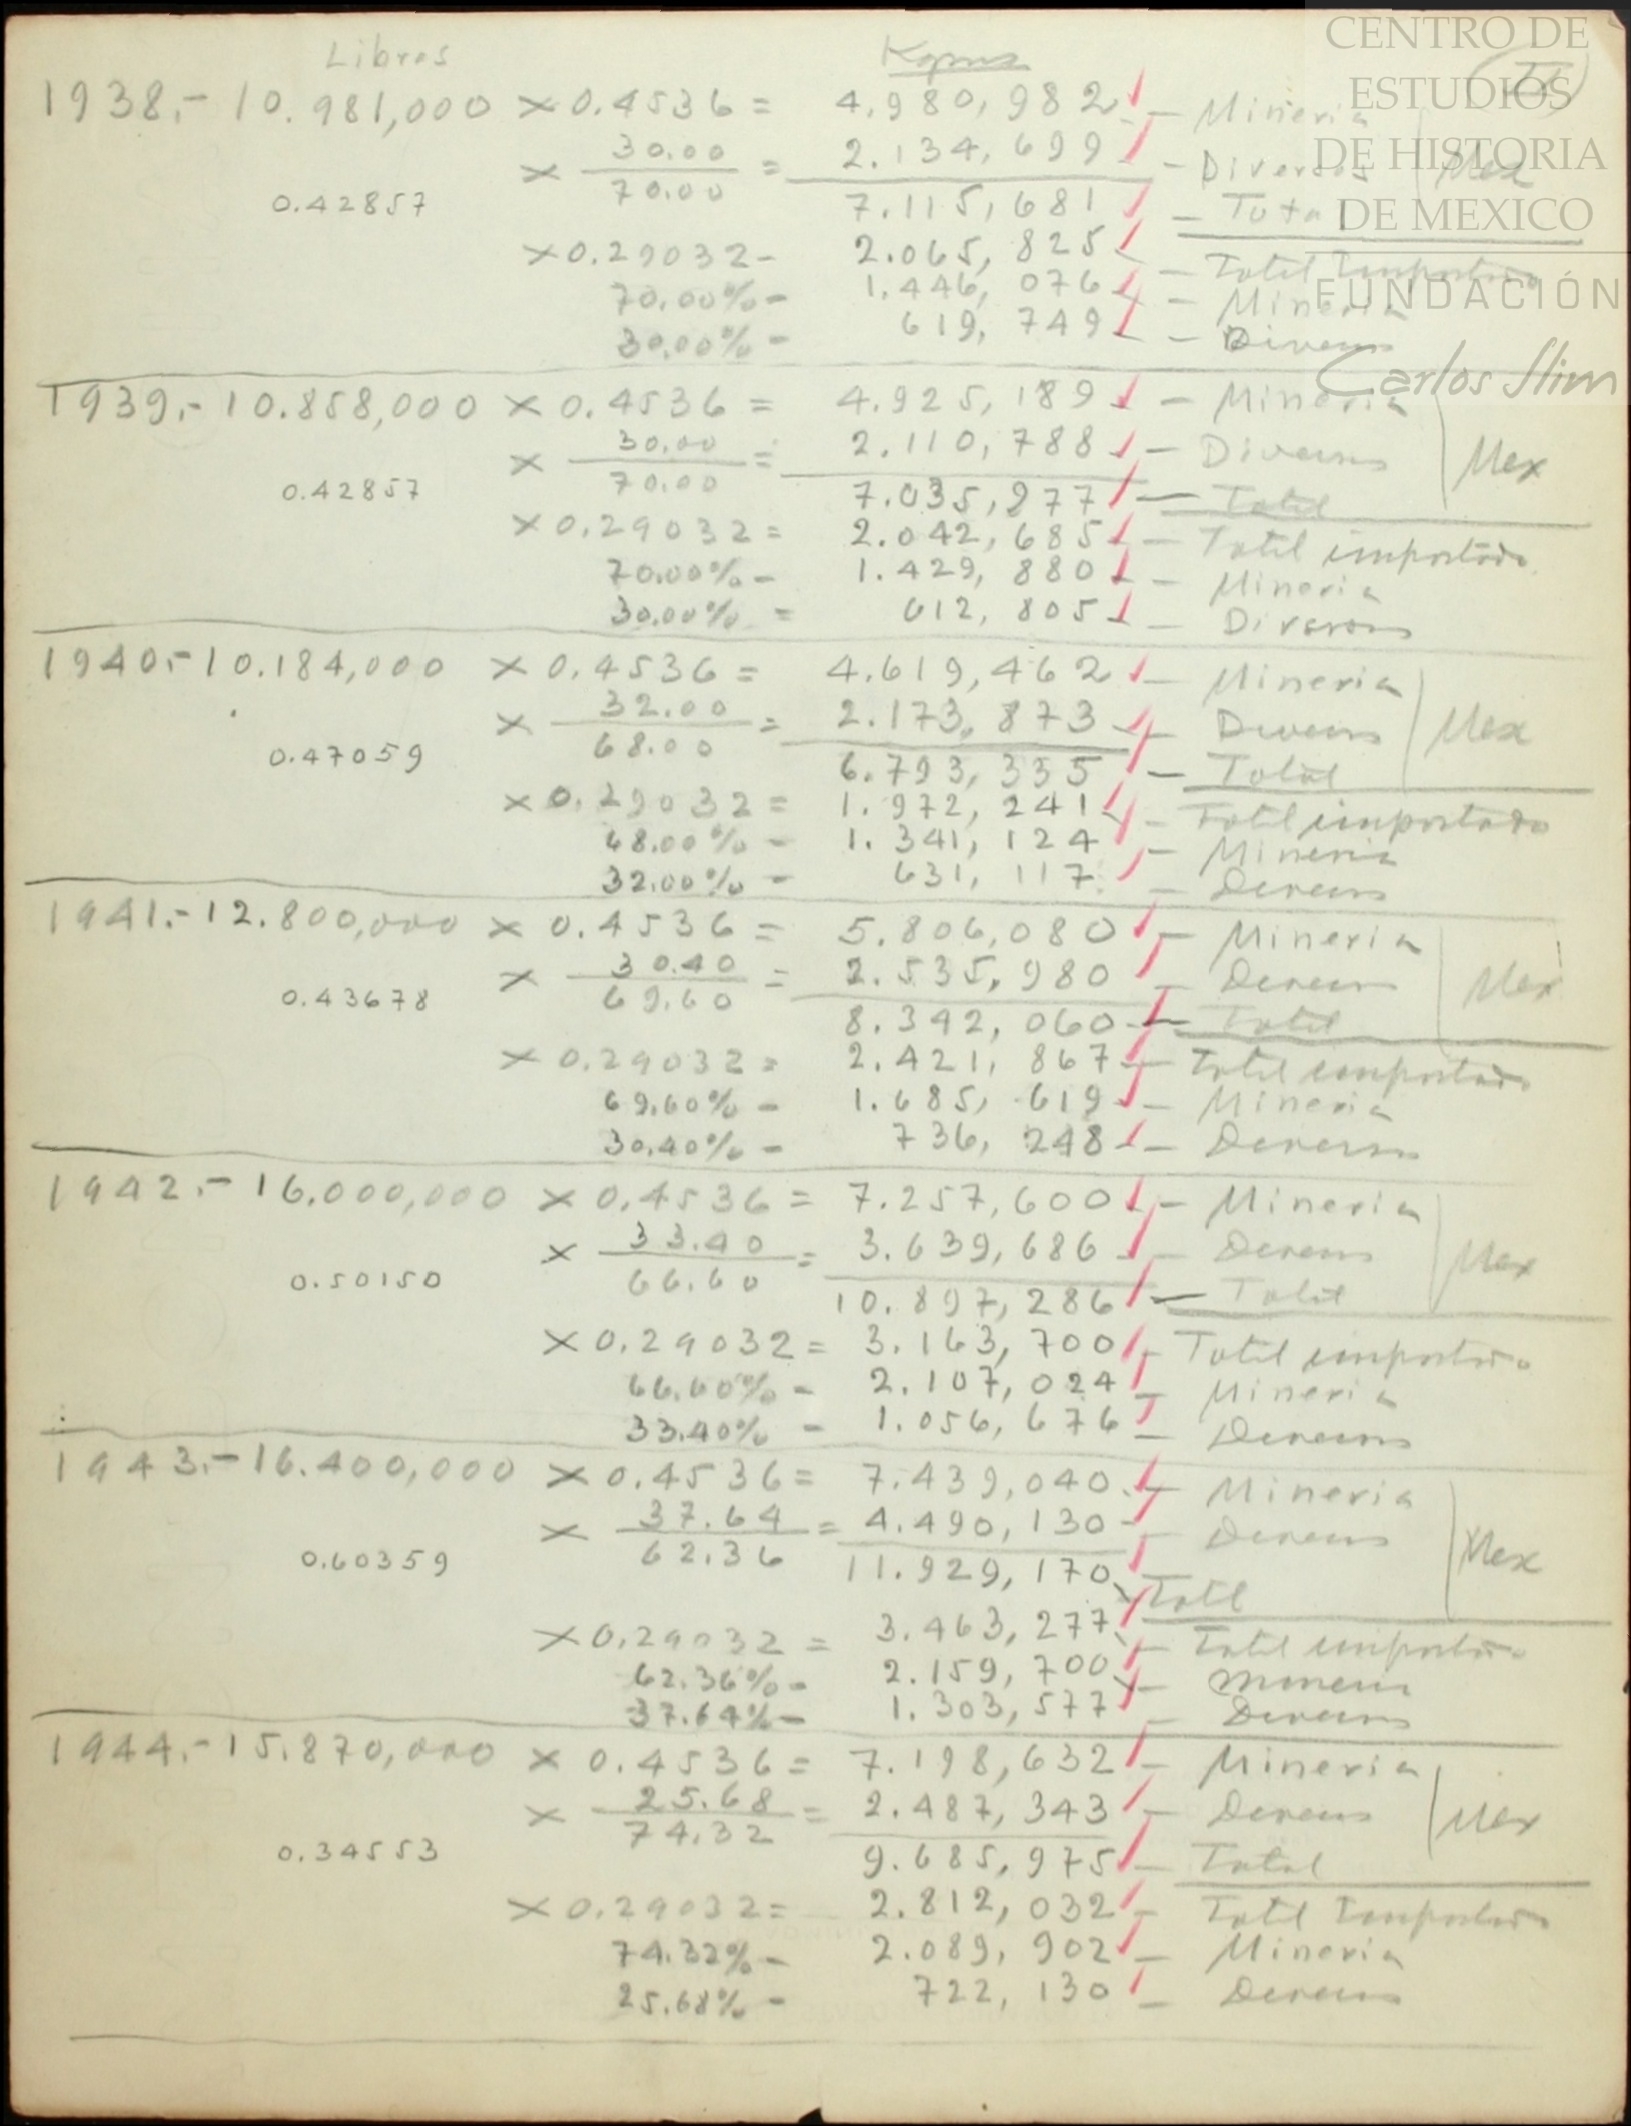 Libras Kgms
CENTRO DE
ESTUDIOS
DE HISTORIA
DE MEXICO
FUNDACIÓN
Carlos Slim
1938.- 10.981,000 × 0.4536 = 4.980,982 - Mineria
× 30.00 / 70.00 = 2.134,699 - Diversos Mex
0.42857 7.115,681 - Total
×0.29032- 2.065,825 - Total Importado
70.00%- 1.446,076 - Mineria
30.00%- 619,749 - Diversos
1939.- 10.858,000 × 0.4536 = 4.925,189 - Mineria
× 30.00 / 70.00 = 2.110,788 - Diversos Mex
0.42857 7.035,977 - Total
×0.29032= 2.042,685 - Total importado
70.00%- 1.429,880 - Mineria
30.00% = 612,805 - Diversos
1940.- 10.184,000 × 0.4536 = 4.619,462 - Mineria
× 32.00 / 68.00 = 2.173,873 - Diversos Mex
0.47059 6.793,335 - Total
×0.29032= 1.972,241 - Total importado
68.00% - 1.341,124 - Mineria
32.00% - 631,117 - Diversos
1941.- 12.800,000 × 0.4536 = 5.806,080 - Mineria
× 30.40 / 69.60 = 2.535,980 - Diversos Mex
0.43678 8.342,060 - Total
×0.29032= 2.421,867 - Total importado
69.60% - 1.685,619 - Mineria
30.40% - 736,248 - Diversos
1942.- 16.000,000 × 0.4536 = 7.257,600 - Mineria
× 33.40 / 66.60 = 3.639,686 - Diversos Mex
0.50150 10.897,286 - Total
×0.29032= 3.163,700 - Total importado
66.60% - 2.107,024 - Mineria
33.40% - 1.056,676 - Diversos
1943.- 16.400,000 × 0.4536 = 7.439,040 - Mineria
× 37.64 / 62.36 = 4.490,130 - Diversos Mex
0.60359 11.929,170 - Total
×0.29032 = 3.463,277 - Total importado
62.36%- 2.159,700 - Mineria
37.64%- 1.303,577 - Diversos
1944.- 15.870,000 × 0.4536 = 7.198,632 - Mineria
× 25.68 / 74.32 = 2.487,343 - Diversos Mex
0.34553 9.685,975 - Total
×0.29032= 2.812,032 - Total Importado
74.32% - 2.089,902 - Mineria
25.68% - 722,130 - Diversos